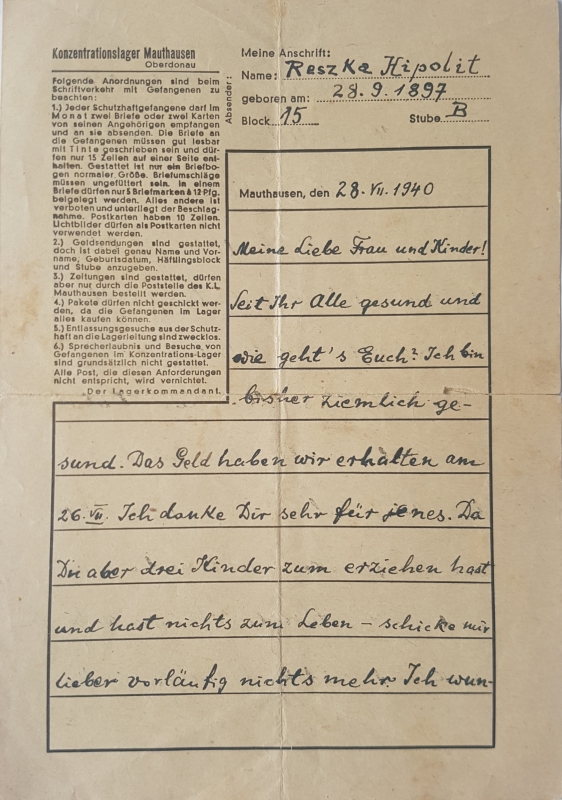 Konzentrationslager Mauthausen
Oberdonau
Folgende Anordnungen sind beim
Schriftverkehr mit Gefangenen zu
beachten:
1.) Jeder Schutzhaftgefangene darf im
Monat zwei Briefe oder zwei Karten
von seinen Angehörigen empfangen
und an sie absenden. Die Briefe an
die Gefangenen müssen gut lesbar
mit Tinte geschrieben sein und dür-
fen nur 15 Zeilen auf einer Seite ent-
halten. Gestattet ist nur ein Briefbo-
gen normaler Größe. Briefumschläge
müssen ungefüttert sein. In einem
Briefe dürfen nur 5 Briefmarken à 12 Pfg.
beigelegt werden. Alles andere ist
verboten und unterliegt der Beschlag-
nahme. Postkarten haben 10 Zeilen.
Lichtbilder dürfen als Postkarten nicht
verwendet werden.
2.) Geldsendungen sind gestattet,
doch ist dabei genau Name und Vor-
name, Geburtsdatum, Häftlingsblock
und Stube anzugeben.
3.) Zeitungen sind gestattet, dürfen
aber nur durch die Poststelle des K.L.
Mauthausen bestellt werden.
4.) Pakete dürfen nicht geschickt wer-
den, da die Gefangenen im Lager
alles kaufen können.
5.) Entlassungsgesuche aus der Schutz-
haft an die Lagerleitung sind zwecklos.
6.) Sprecherlaubnis und Besuche von
Gefangenen im Konzentrations-Lager
sind grundsätzlich nicht gestattet.
Alle Post, die diesen Anforderungen
nicht entspricht, wird vernichtet.
Der Lagerkommandant.
Absender:
Meine Anschrift:
Name: Reszka Hipolit
geboren am: 28.9.1897
Block 15 Stube B
Mauthausen, den 28.VII.1940
Meine Liebe Frau und Kinder!
Seit Ihr Alle gesund und
wie geht's Euch? Ich bin
bisher ziemlich ge-
sund. Das Geld haben wir erhalten am
26.VII. Ich danke Dir sehr für jenes. Da
Du aber drei Kinder zum erziehen hast
und hast nichts zum Leben – schicke mir
lieber vorläufig nichts mehr. Ich wun-